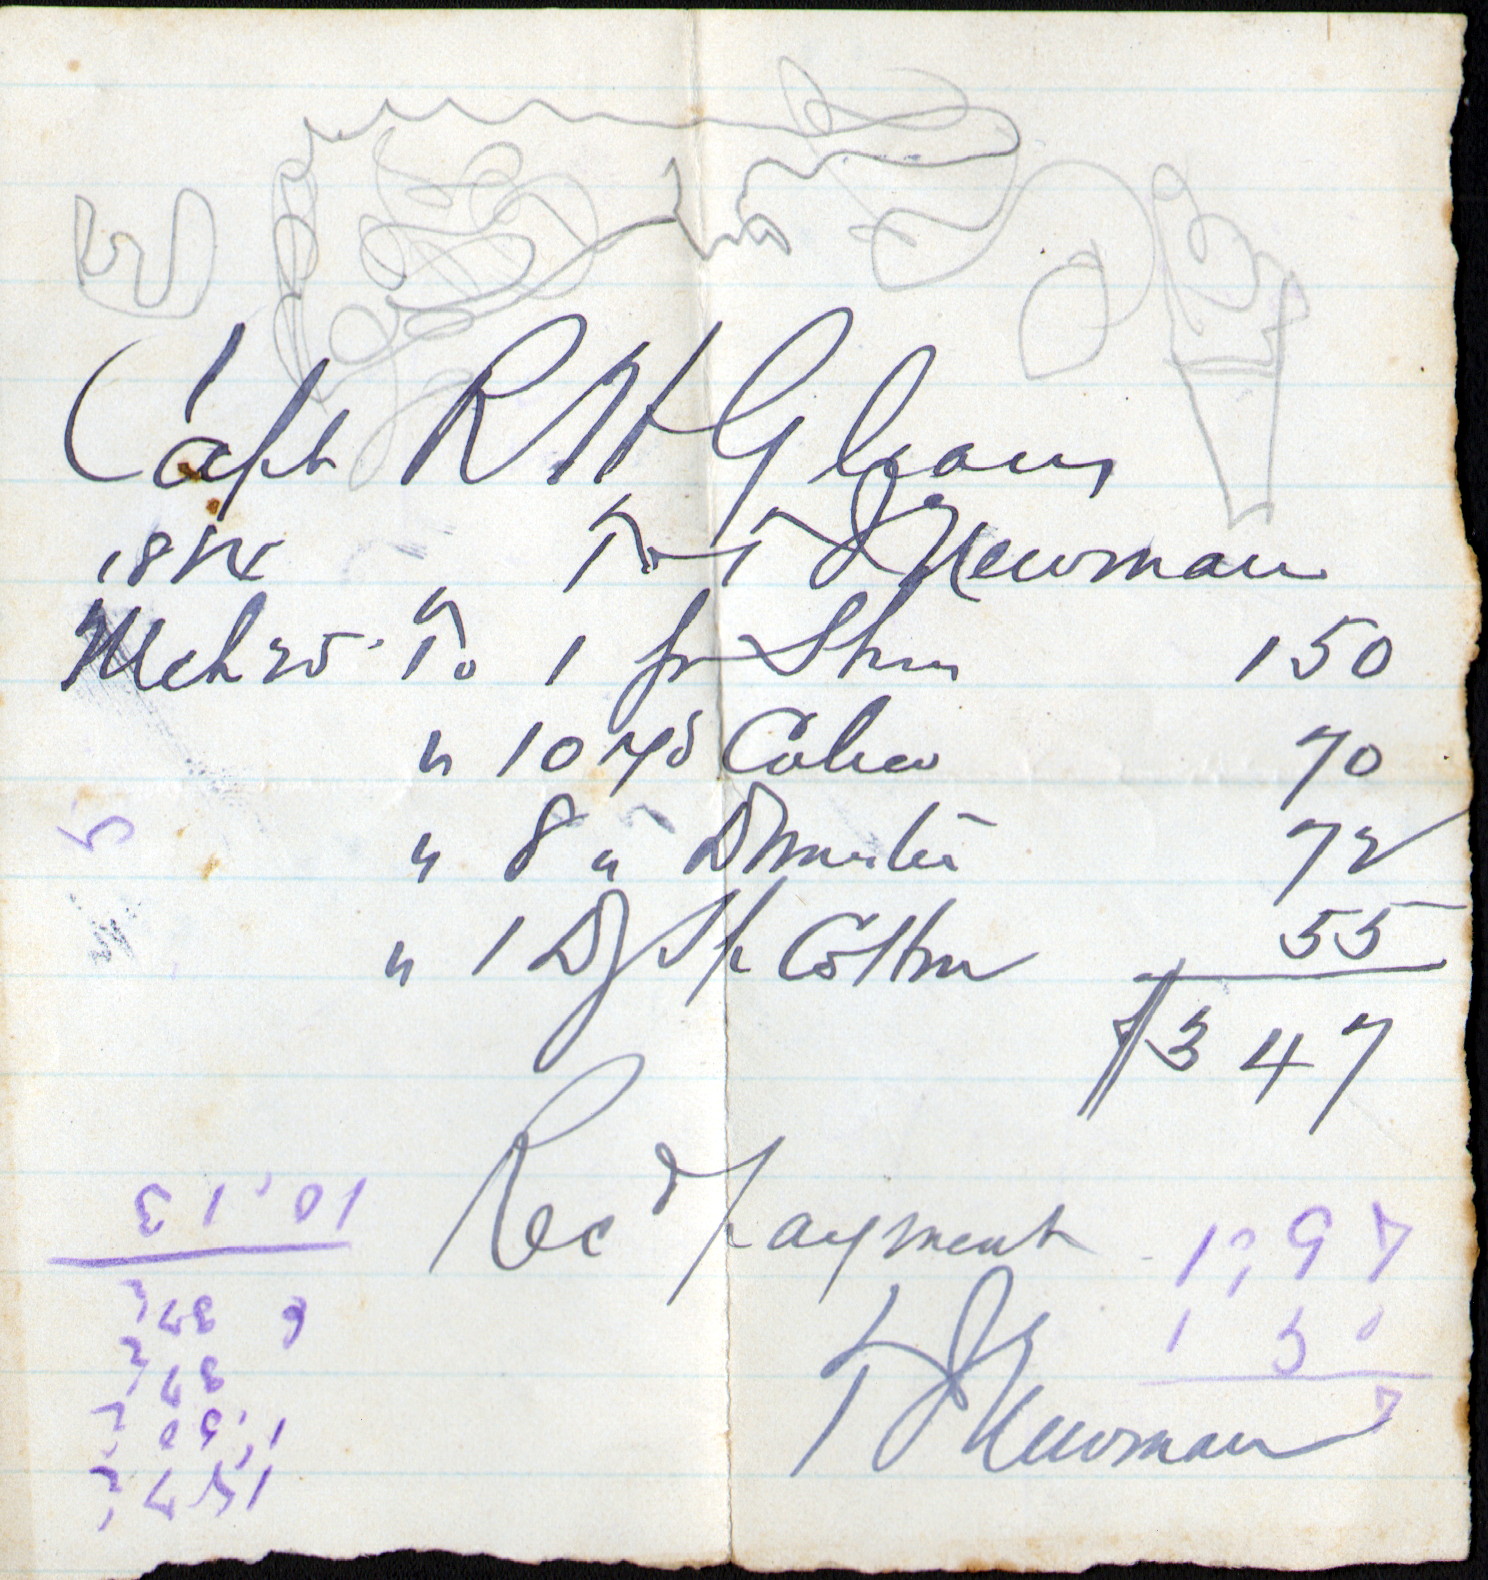 Capt R H Gleaves
To T J Newman
Mch 25 To 1 pr Shoes 150
" 10 yds Calico 70
" 8 " Domestic 72
" 1 Dz Sp Cotton 55
$3 47
Recd payment
T J Newman
1,97
1 50
7
5
10,13